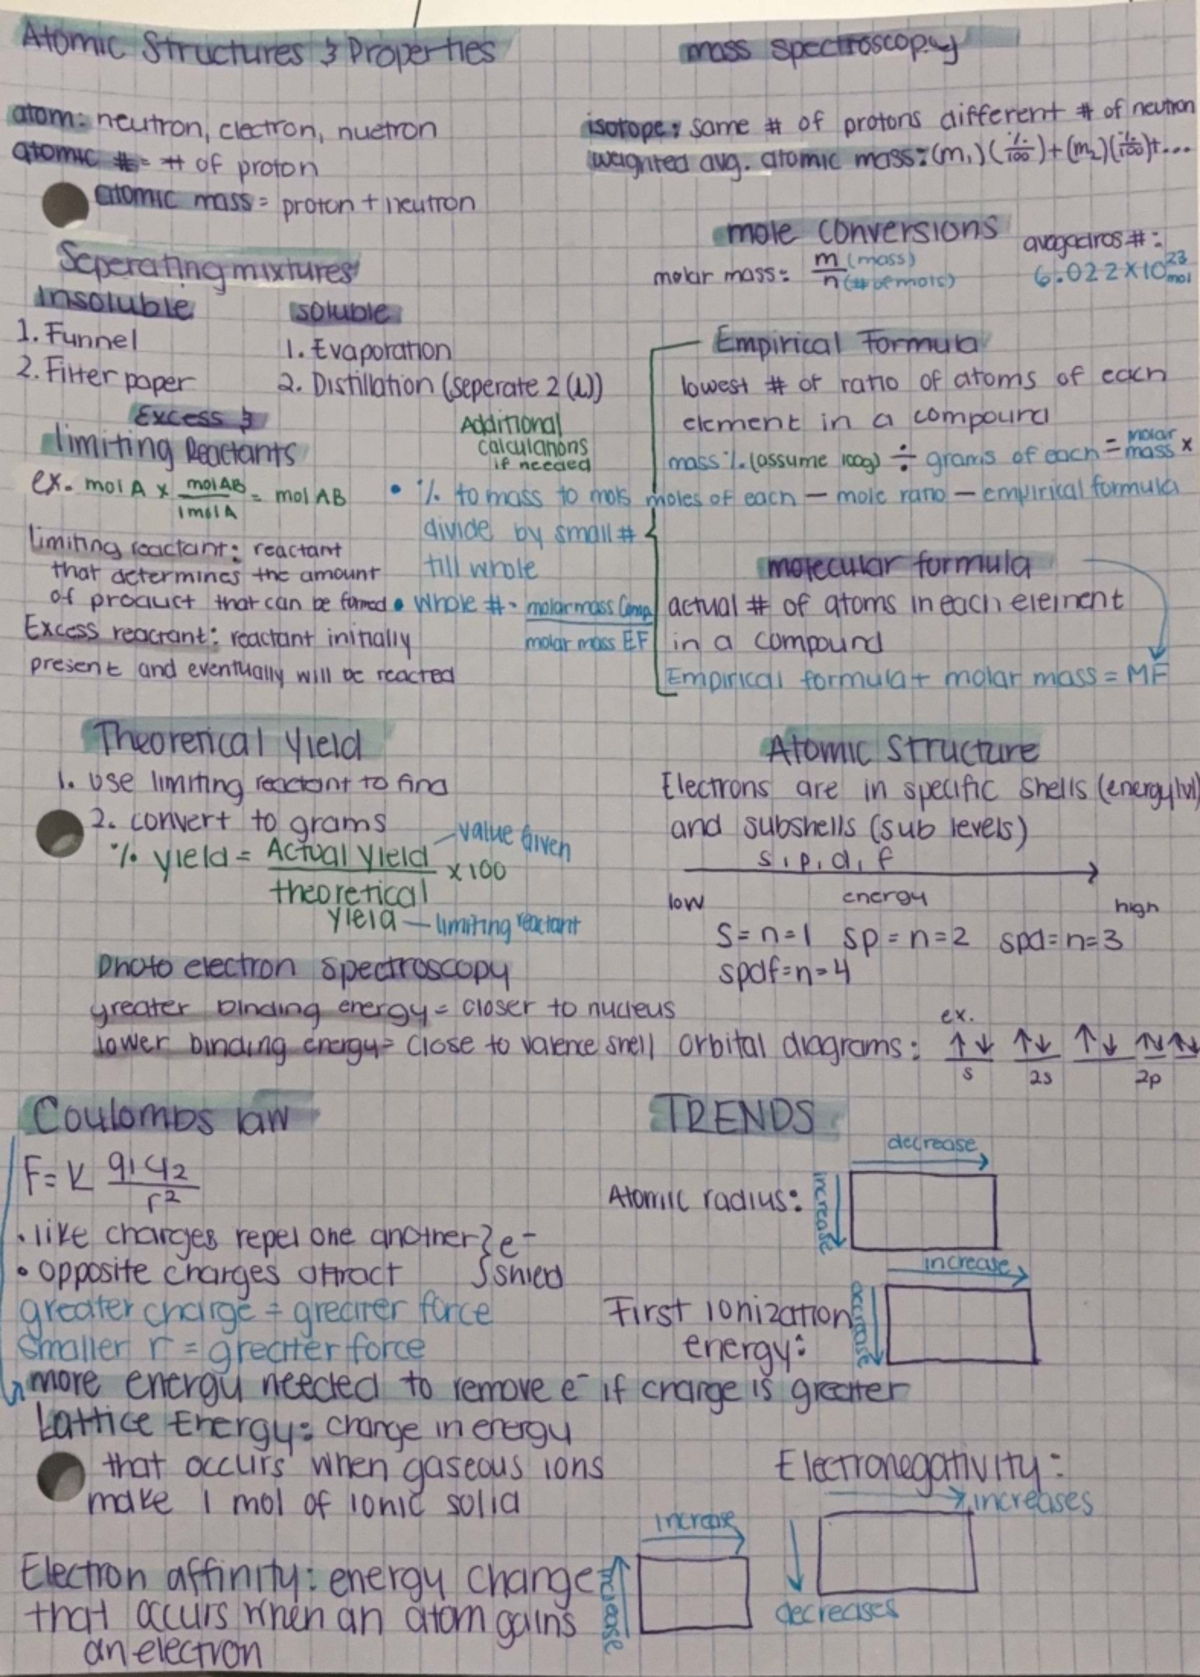 Atomic Structures & Properties
atom: neutron, electron, nuetron
atomic # = # of proton
atomic mass = proton + neutron
Seperating mixtures
Insoluble
1. Funnel
2. Filter paper
soluble
1. Evaporation
2. Distillation (seperate 2 (L))
Excess &
limiting Reactants
ex. mol A x mol AB / 1 mol A = mol AB
limiting reactant: reactant
that determines the amount
of product that can be formed
Excess reactant: reactant initially
present and eventually will be reacted
Additional
calculations
if needed
• % to mass to mols
divide by small #
till whole
• whole # = molar mass Comp / molar mass EF
mass spectroscopy
isotope: same # of protons different # of neutron
weighted avg. atomic mass: (m₁)(%/100) + (m₂)(%/100) + ...
mole conversions
molar mass: m (mass) / n (# of mols)
avagadros #:
6.022 x 10²³ mol
Empirical Formula
lowest # or ratio of atoms of each
element in a compound
mass % (assume 100g) ÷ grams of each = molar mass x
moles of each — mole ratio — empirical formula
molecular formula
actual # of atoms in each element
in a compound
Empirical formula + molar mass = MF
Theoretical Yield
1. use limiting reactant to find
2. convert to grams
% yield = Actual yield / theoretical yield x 100
value given
limiting reactant
Atomic Structure
Electrons are in specific shells (energy lvl)
and subshells (sub levels)
s, p, d, f
low energy high
S = n = 1 sp = n = 2 spd = n = 3
spdf = n = 4
Photo electron Spectroscopy
greater binding energy = closer to nucleus
lower binding energy = close to valence shell
ex.
orbital diagrams: ↑↓ ↑↓ ↑↓ ↑↓ ↑↓
s 2s 2p
Coulombs law
F = K q₁q₂ / r²
• like charges repel one another } e⁻
• opposite charges attract } shield
greater charge = greater force
smaller r = greater force
more energy needed to remove e⁻ if charge is greater
Lattice Energy: change in energy
that occurs when gaseous ions
make 1 mol of ionic solid
Electron affinity: energy change
that occurs when an atom gains
an electron
increase
increase
TRENDS
decrease
Atomic radius:
increase
increase
First ionization
energy:
decrease
Electronegativity:
increases
decreases